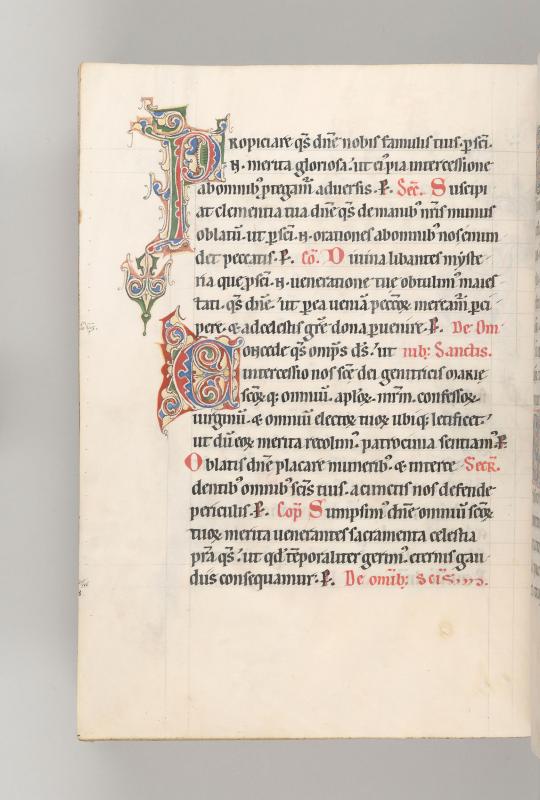 Propiciare qs dñe nobis famulis tuis · p sc̄i ·
·N· merita gloriosa · ut eiꝰ pia intercessione
ab omnibꝰ ꝓtegam̄ adversis · P· Sec̄. Suscipi
at clementia tua dñe qs de manibꝰ nr̄is munus
oblatū · ut p sc̄i ·N· orationes ab omnibꝰ nos emun
det peccatis · P· Cō. Divina libantes myste
ria que p sc̄i ·N· veneratione tue obtulimꝰ maies
tati · qs dñe · ut p ea veniā pecc̄oꝝ meream̄ p ci
pere · & a celestis gr̄e dona pvenire · P· De Om
Concede qs om̄ps d̄s · ut nib; Sanctis.
intercessio nos sc̄e dei genitricis marie
sc̄oꝝ q; omniū · aplōꝝ · mr̄m · confessoꝝ ·
virginū · & omniū electoꝝ tuoꝝ ubiq; letificet ·
ut dū eoꝝ merita recolimꝰ · patrocinia sentiamꝰ · P·
Oblatis dñe placare muneribꝰ · & interce Secr̄.
dentibꝰ omnibꝰ sc̄is tuis · a cunctis nos defende
periculis · P· Cop̄ Sumpsimꝰ dñe omniū sc̄oꝝ
tuoꝝ merita venerantes sacramenta celestia
pr̄a qs · ut qd tēporaliter gerimꝰ · eternis gau
diis consequamur · P· De om̄ib; sc̄is